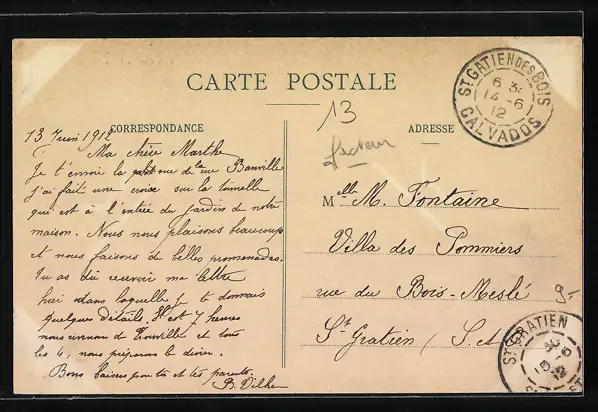 CARTE POSTALE
CORRESPONDANCE
13 Juin 1912
Ma chère Marthe
Je t'envoie la vue de la rue Banville
j'ai fait une croix sur la tonnelle
qui est à l'entrée du jardin de notre
maison. Nous nous plaisons beaucoup
et nous faisons de belles promenades.
Tu as dû recevoir ma lettre
hier dans laquelle je te donnais
quelques détails. Il est 7 heures
nous venons de Trouville et tous
les 4, nous préparons le dîner.
Bons baisers pour toi et tes parents.
13
facteur
ADRESSE
Melle M. Fontaine
Villa des Pommiers
rue du Bois-Meslé
St Gratien (S. et
St GATIEN DES BOIS
6 3
14 -6
12
CALVADOS
St GRATIEN